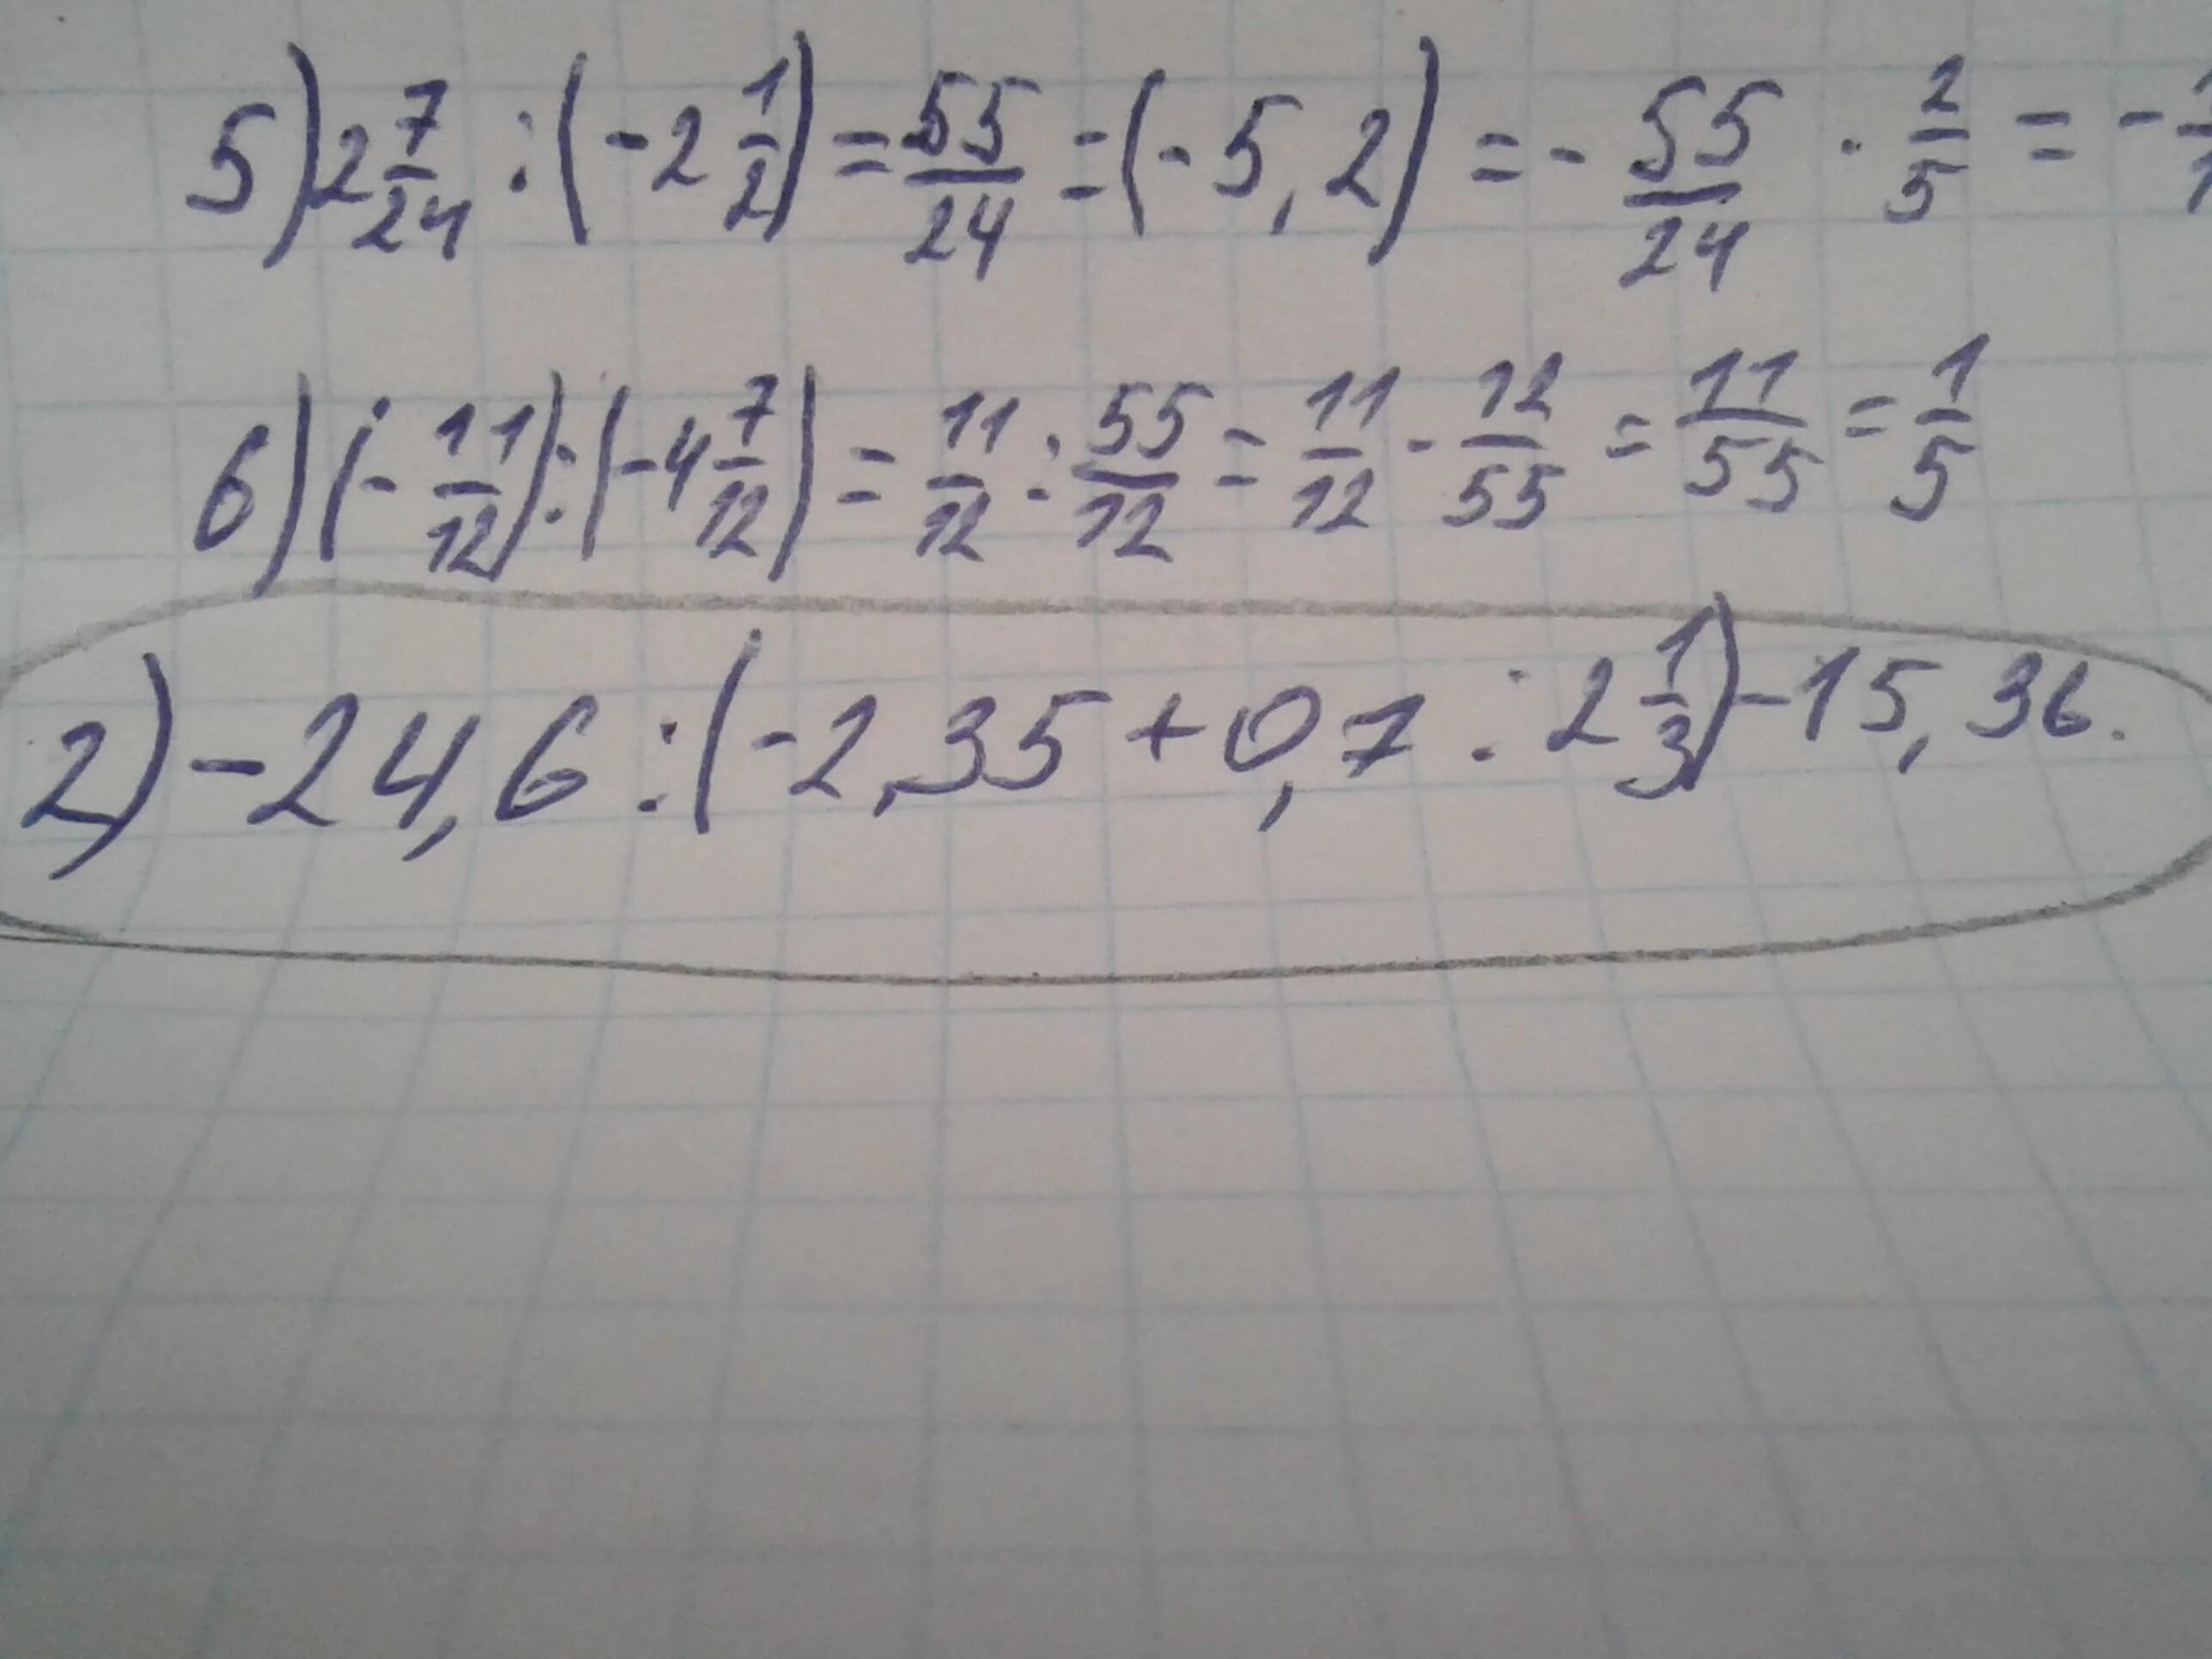 5) 2 7/24 : (-2 1/2) = 55/24 = (-5,2) = - 55/24 · 2/5 = -
6) (- 11/12) : (-4 7/12) = 11/12 : 55/12 = 11/12 · 12/55 = 11/55 = 1/5
2) -24,6 : (-2,35 + 0,7 : 2 1/3) - 15,36.